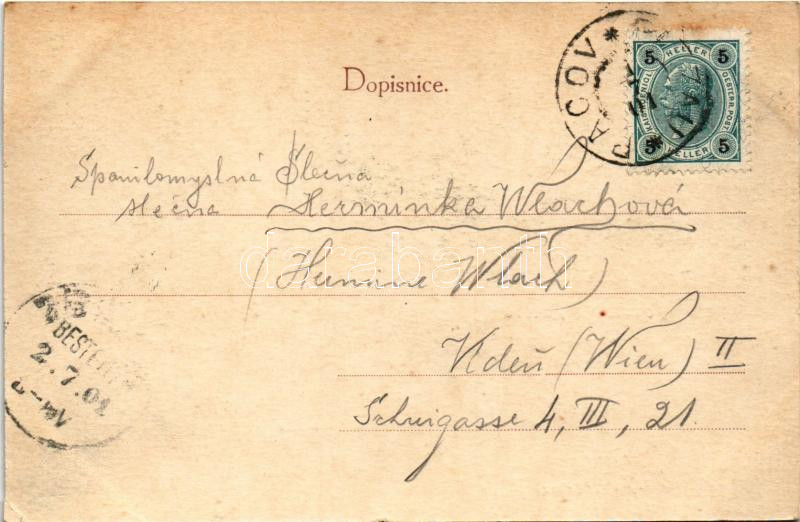 Dopisnice.
PACOV
5 HELLER 5
KAIS. KÖNIGL. OESTERR. POST.
5 HELLER 5
Spanilomyslná Slečna
slečna Herminka Wlachová
darabanth
(Hermine Wlach)
Vídeň (Wien) II
4, III, 21.
BESTELLT
2.7.01